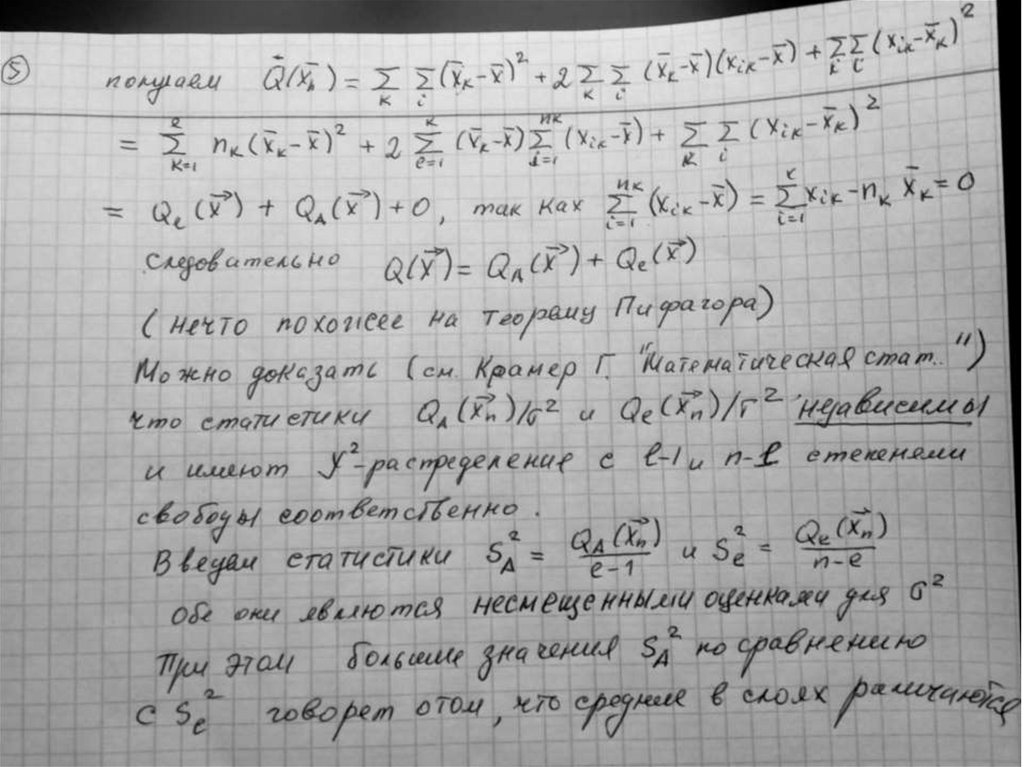 ⑤ получаем Q(x⃗ₙ) = Σ_k Σ_i (x̄_k - x̄)² + 2 Σ_k Σ_i (x̄_k - x̄)(x_ik - x̄) + Σ_k Σ_i (x_ik - x̄_k)²
= Σ_{k=1}^{e} n_k (x̄_k - x̄)² + 2 Σ_{e=1}^{k} (x̄_k - x̄) Σ_{i=1}^{nk} (x_ik - x̄) + Σ_k Σ_i (x_ik - x̄_k)²
= Q_e(x⃗) + Q_A(x⃗) + 0, так как Σ_{i=1}^{nk} (x_ik - x̄) = Σ_{i=1}^{k} x_ik - n_k x̄_k = 0
следовательно Q(x⃗) = Q_A(x⃗) + Q_e(x⃗)
(нечто похожее на теорему Пифагора)
Можно доказать (см. Крамер Г. "Математическая стат..")
что статистики Q_A(x⃗ₙ)/σ² и Q_e(x⃗ₙ)/σ² независимы
и имеют χ²-распределение с l-1 и n-l степенями
свободы соответственно.
Введем статистики S_A² = Q_A(x⃗ₙ)/(e-1) и S_e² = Q_e(x⃗ₙ)/(n-e)
обе они являются несмещенными оценками для σ²
При этом большие значения S_A² по сравнению
с S_e² говорет о том, что средние в слоях различаются